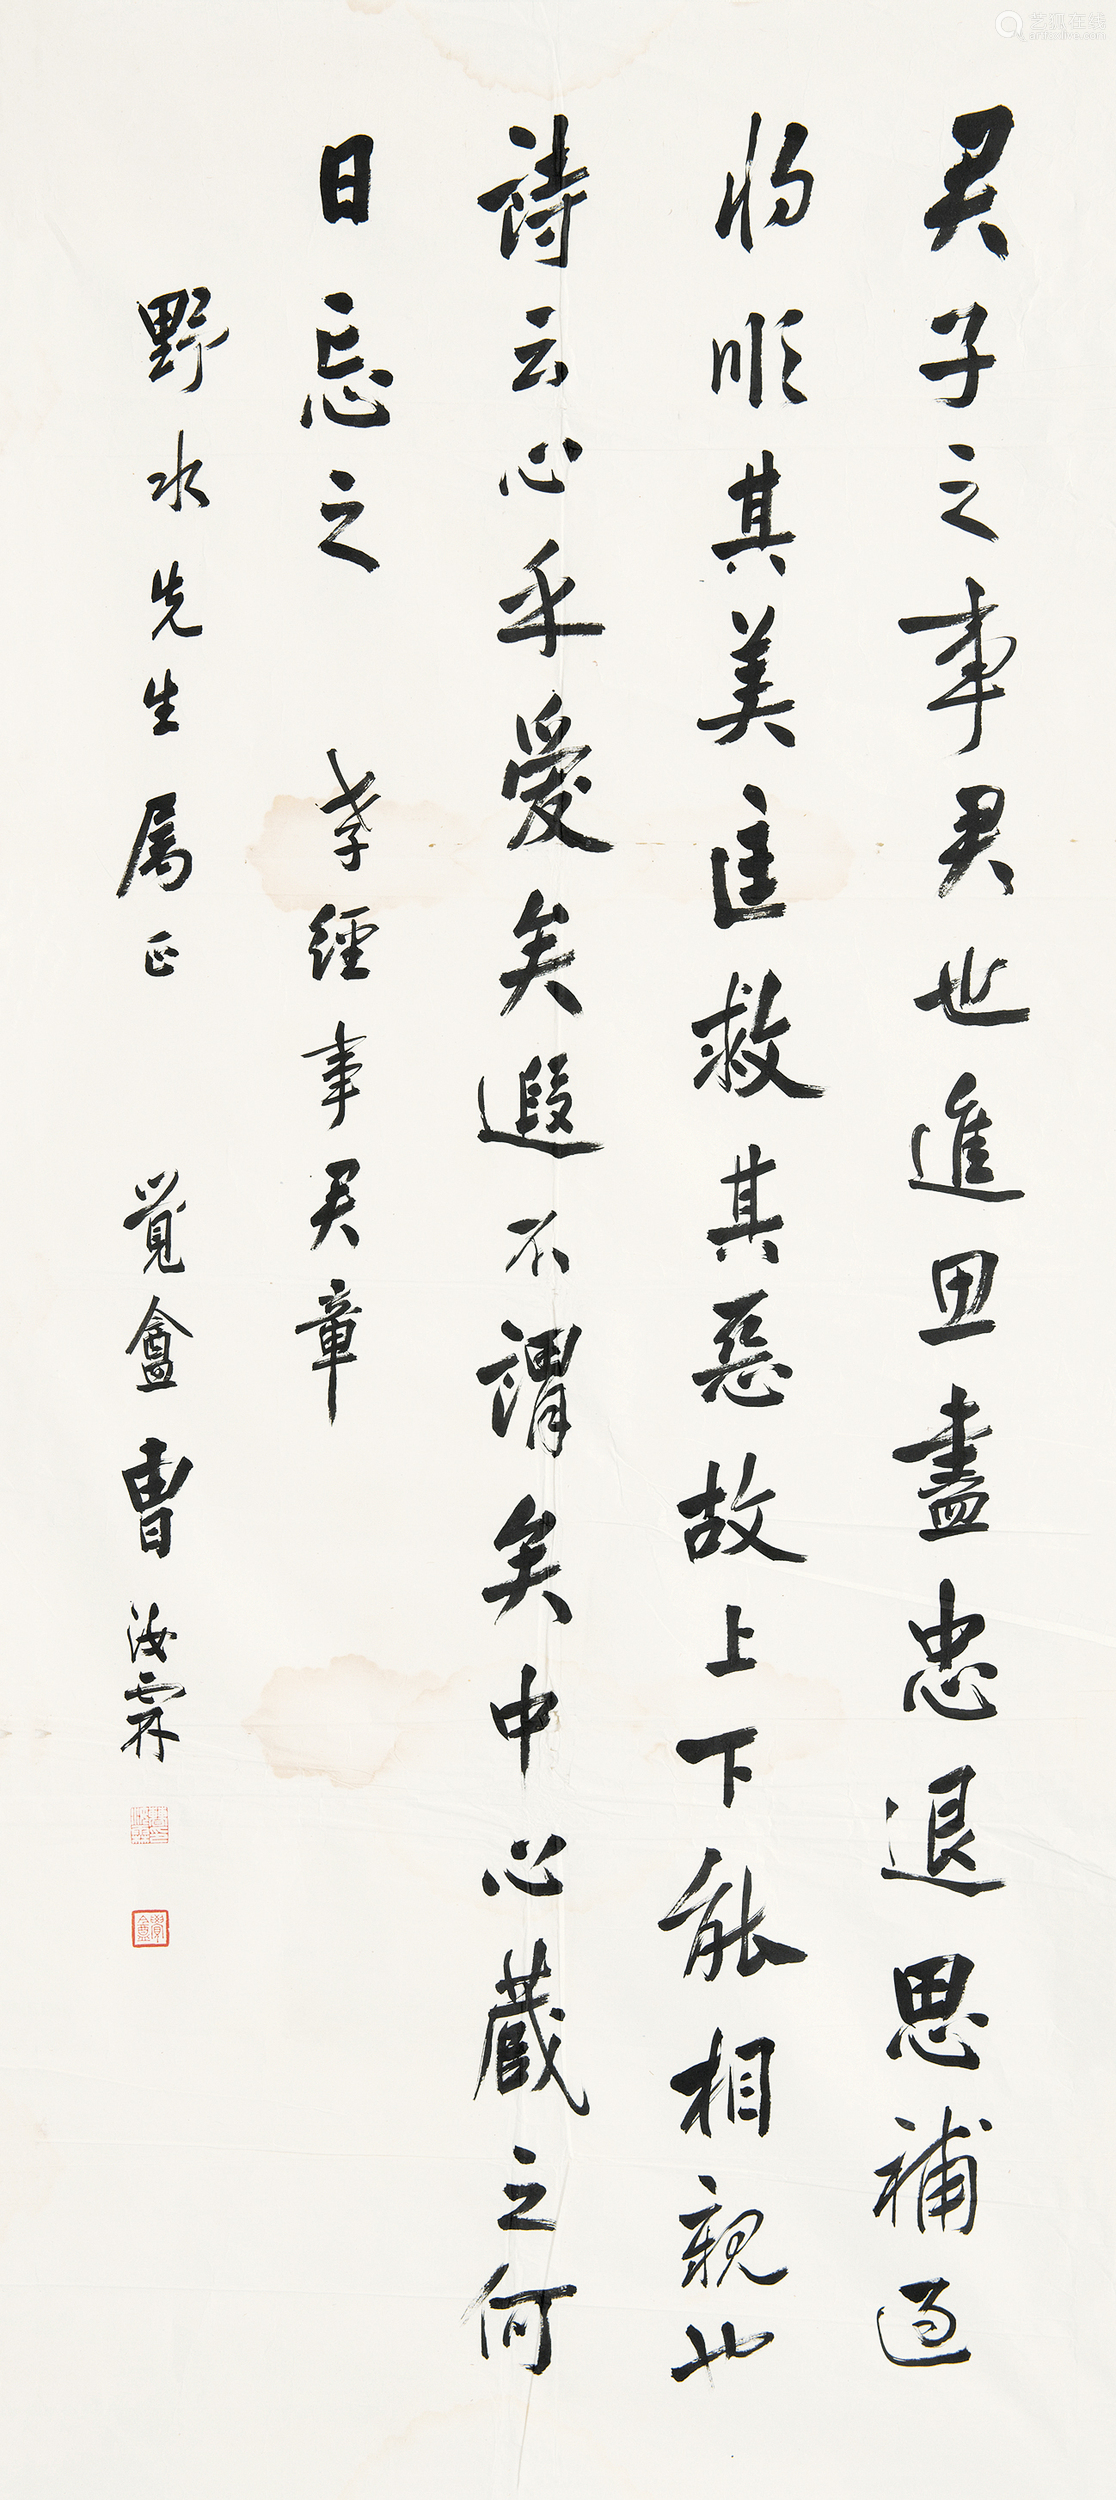 君子之事君也進思盡忠退思補過
將順其美匡救其惡故上下能相親也
詩云心乎愛矣遐不謂矣中心藏之何
日忘之 孝經事君章
野水先生屬正 覺盦曹汝霖
覺盦
艺狐在线
artfoxlive.com